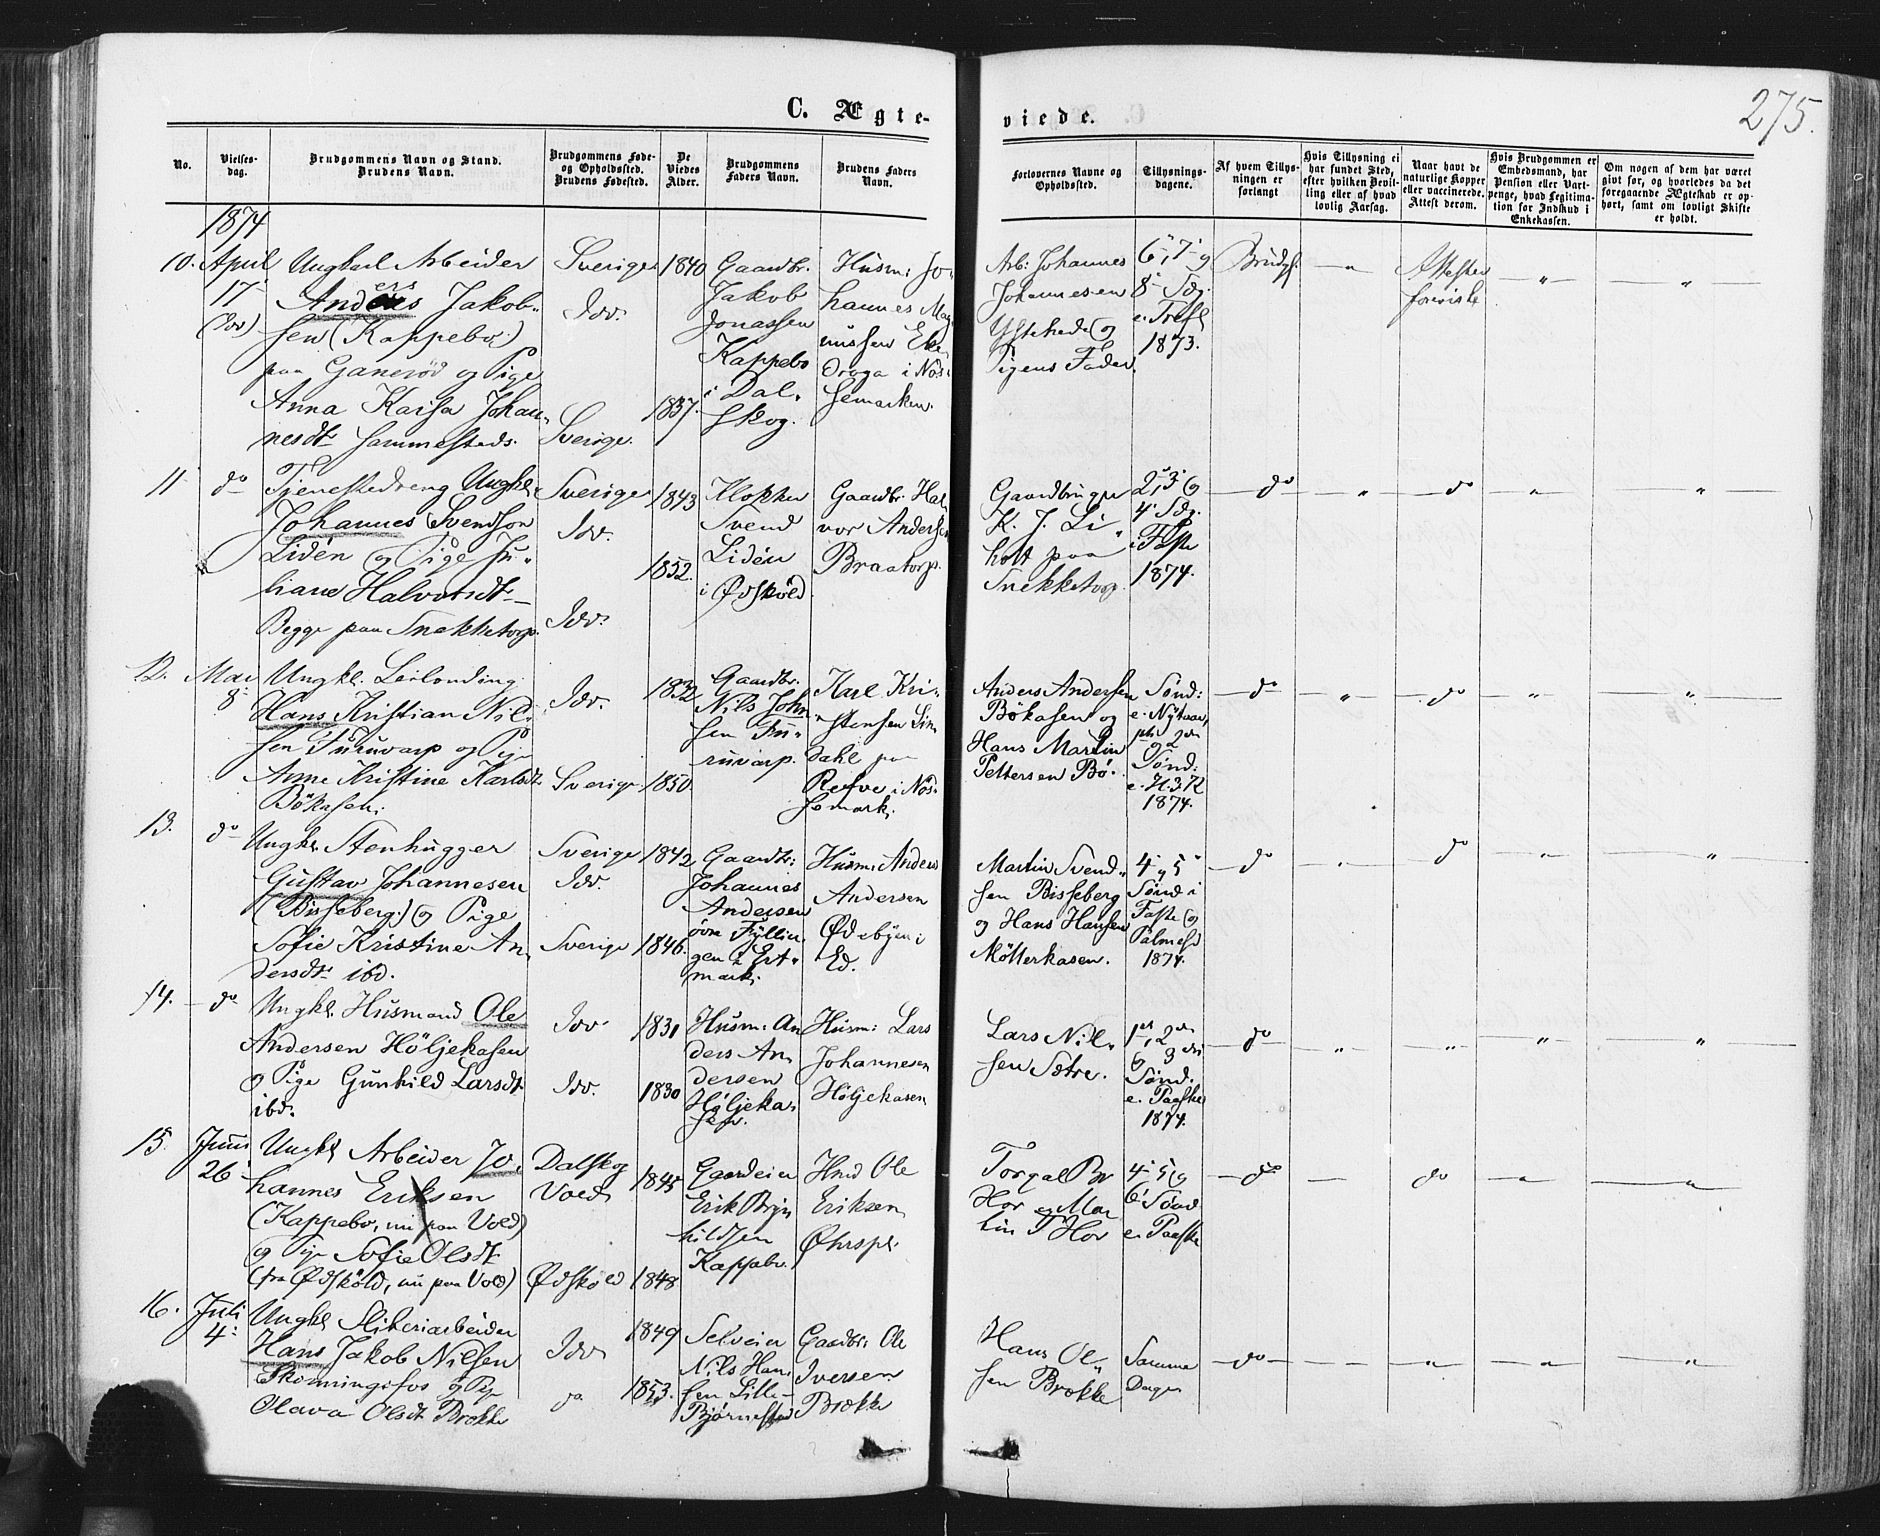 C. Ægte-
viede.
275.
No.
Vielses-
dag.
Brudgommens Navn og Stand.
Brudens Navn.
Brudgommens Føde-
og Opholdssted.
Brudens Fødested.
De
Viedes
Alder.
Brudgommens
Faders Navn.
Brudens Faders
Navn.
Forlovernes Navne og
Opholdssted.
Tillysnings-
dagene.
Af hvem Tillys-
ningen er
forlangt
Hvis Tillysning ei
har fundet Sted,
efter hvilken Bevil-
ling eller af hvad
lovlig Aarsag.
Naar havt de
naturlige Kopper
eller vaccinerede.
Attest derom.
Hvis Brudgommen er
Embedsmand, har
Pension eller Vart-
penge, hvad Legitima-
tion for Indskud i
Enkekassen.
Om nogen af dem har været
givt før, og hvorledes da det
foregaaende Ægteskab er op-
hørt, samt om lovligt Skifte
er holdt.
1874
10.
April
17
(Idd)
Ungkarl Arbeider
Anders Jakob-
sen (Kappebo)
paa Ganerød og Pige
Anna Kaisa Johan-
nesdt sammesteds.
Sverige
Idd.
Sverige.
1840
1837.
Gaardbr.
Jakob
Jonassen
Kappebo
i Dal-
skog.
Husm: Jo-
hannes Mag-
nussen Eke
Droga i Nös-
semarken.
Arb: Johannes
Johannesen
Ystehede og
Pigens Fader
6, 7 og
8 Sdg.
e. Tref.
1873.
Brudg.
"
Attester
foreviste
"
"
11
do
Tjenestedreng Ungkl.
Johannes Svendsen
Lidén og Pige Ju-
liane Halvorsdt
Begge paa Snekketorp.
Sverige
Idd.
Idd.
1843
1852.
Klokker
Svend
Lidén
i Ødskøld
Gaardbr. Hal-
vor Andersen
Braatorp.
Gaardbruger
K. J. Li
holt paa
Snekketorp
2, 3 og
4 Sdg.
i Faste
1874.
do
"
do
"
"
12.
Mai
8
Ungkl. Leilending
Hans Kristian Nil-
sen Furuvarp og Pige
Anne Kristine Karlsdt.
Bökasen.
Idd.
Sverige
1832
1850.
Gaardbr.
Nils John-
sen Fu-
ruvarp.
Karl Kri-
stensen Lin-
dahl paa
Refve i Nös-
semark.
Anders Andersen
Bökasen og
Hans Martin
Pettersen Bö.
Sönd:
e. Nytaar,
og 2den
Sönd:
e. H.3.K
1874.
do
"
do
"
"
13.
do
Ungkl. Stenhugger
Gustav Johannesen
(Bisseberg) og Pige
Sofie Kristine An-
dersdt. ibd.
Sverige
Idd.
Sverige
1842
1846.
Gaardbr:
Johannes
Andersen
Husm: Anders
Andersen
Ödebyen i
Ed.
Martin Svend-
sen Bisseberg
og Hans Hansen
Mötterkasen.
4 og 5
Sönd i
Faste og
Palmesd
1874.
do
"
do
"
"
14.
do
Ungkl. Husmand Ole
Andersen Höljekasen
og Pige Gunhild Larsdt
ibd.
Idd
Idd.
1831
1830
Husm: An
ders An-
dersen
Höljeka-
sen.
Husm: Lars
Johannesen
Höljekasen
Lars Nil-
sen Sætre.
1st, 2den
og 3die
Sönd.
e. Paaske
1874.
do
"
"
"
"
15.
Juni
26
Ungkl. Arbeider Jo-
hannes Eriksen
(Kappebo, nu paa Vold)
og Pige Sofie Olsdt.
(fra Ødsköld, nu paa Vold)
Dalskog
Vold
Ødsköld
1845
1848
Gaardeier
Erik Bryn
hildsen
Kappebo.
Hmd Ole
Eriksen
Torgal Br
Hov og Mar
tin T Hov
4, 5 og
6 Sönd
e. Paaske
do
do
"
"
16.
Juli
4
Ungkl. Sliberiarbeider
Hans Jakob Nilsen
Skonningsfos og Pige
Olava Olsdt Brokke
Idd
do
1849
1853.
Selveier
Nils Han-
sen Lille-
Bjørnestad
Gaardbr: Ole
Iversen
Brække
Hans Ol-
sen Brække
Samme
Dage
do
"
"
"